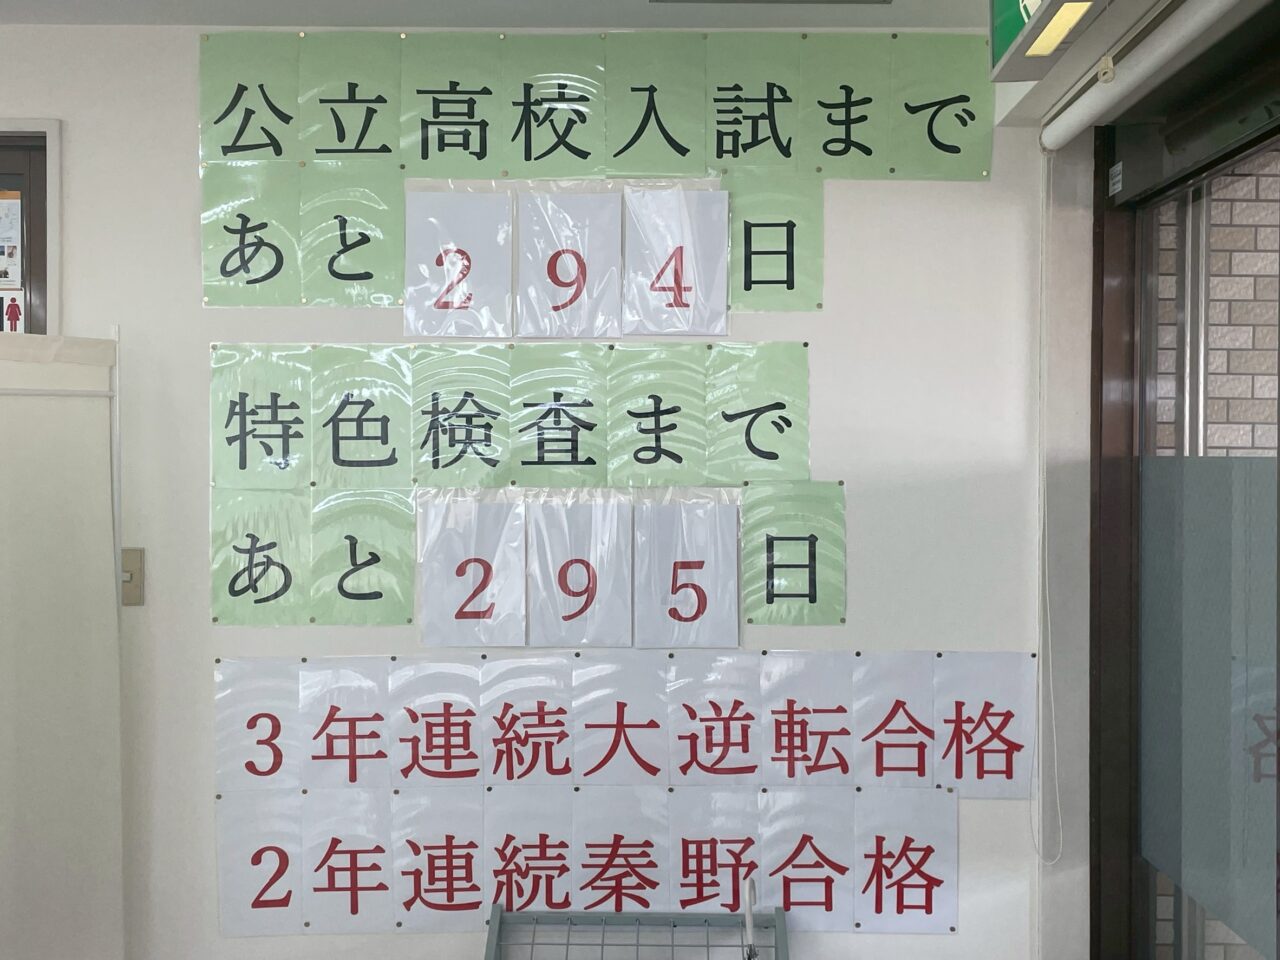 公立高校入試まで
あと294日
特色検査まで
あと295日
3年連続大逆転合格
2年連続秦野合格